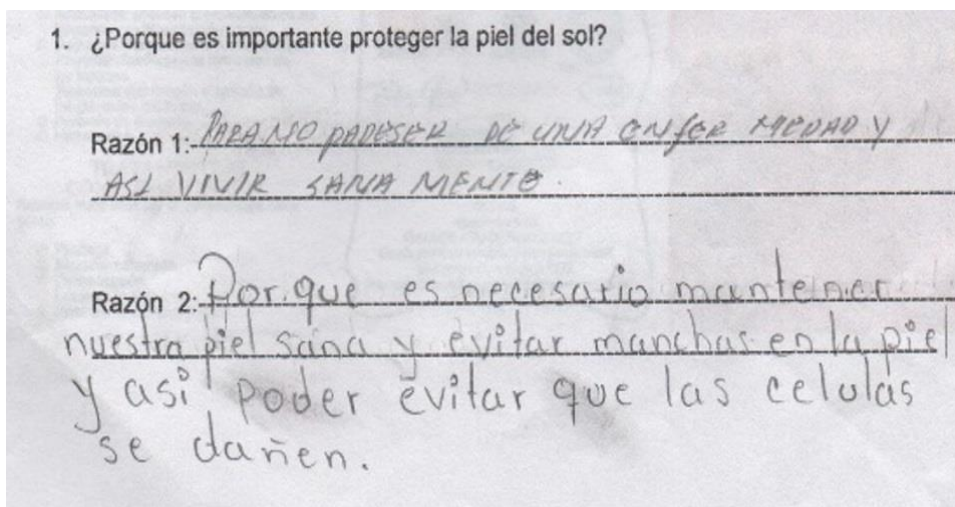 1. ¿Porque es importante proteger la piel del sol?
Razón 1: PARA NO PADESER DE UNA ENFER MEDAD Y
ASI VIVIR SANA MENTE.
Razón 2: Por que es necesario mantener
nuestra piel sana y evitar manchas en la piel
y así poder evitar que las celulas
se dañen.